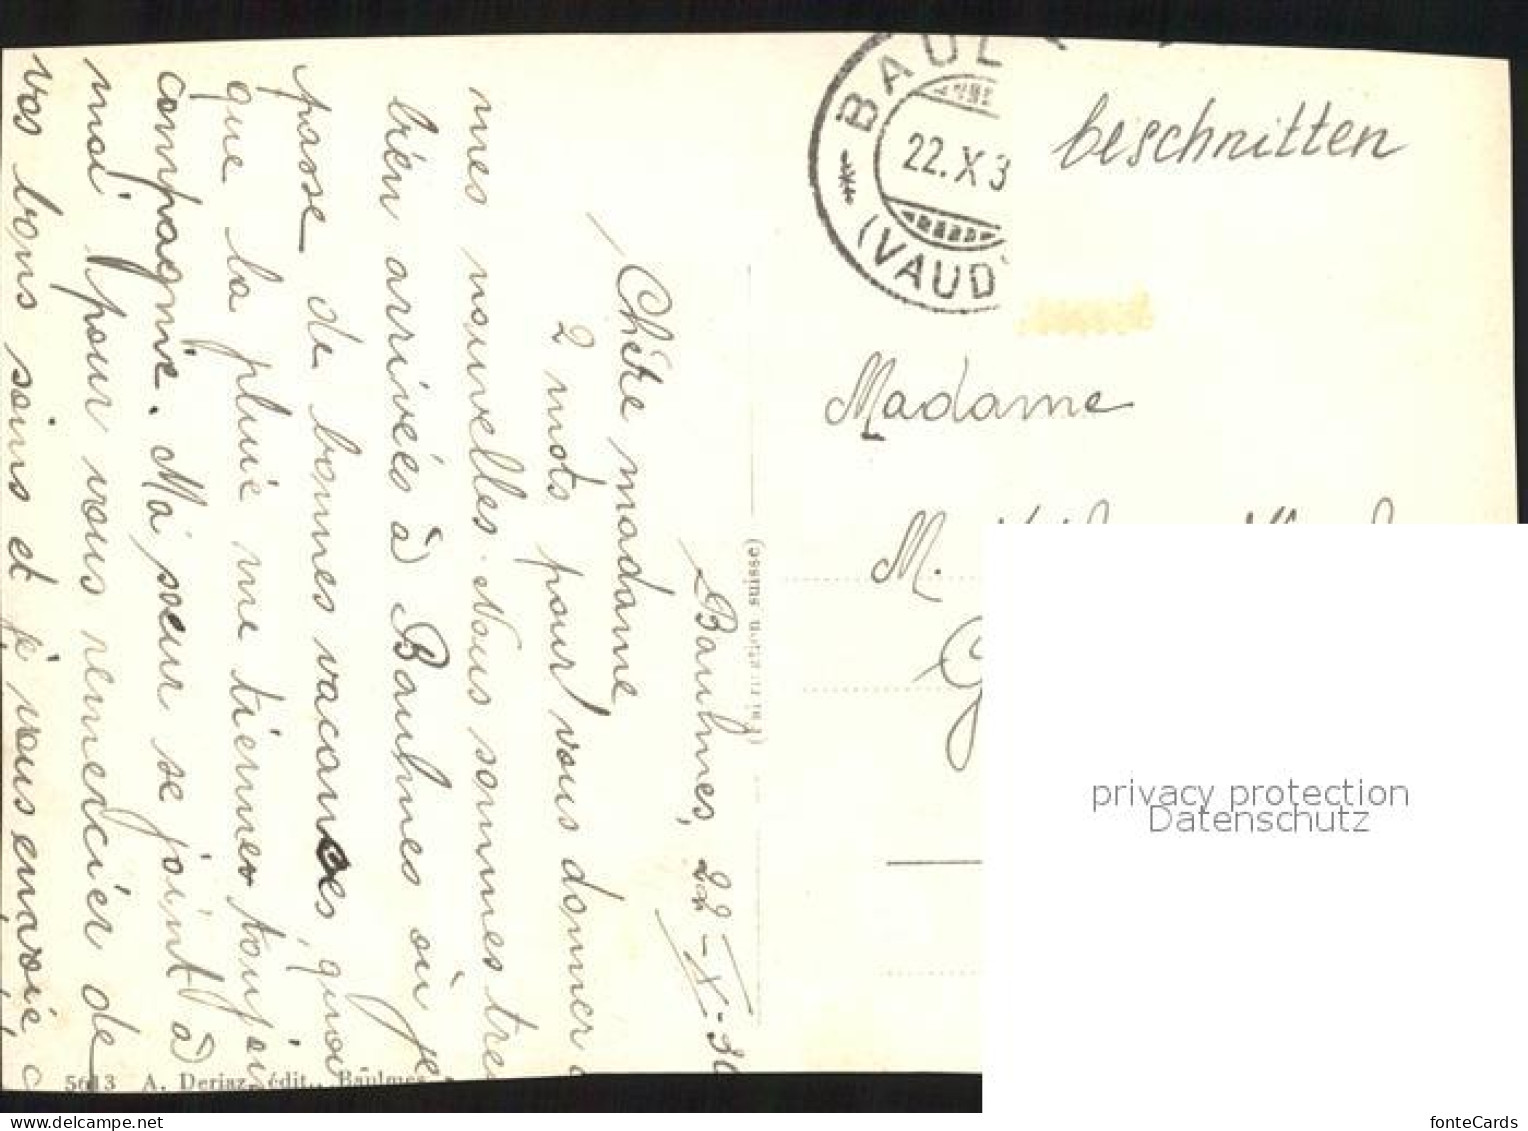 BAUL
22.X 3
(VAUD
beschnitten
Madame
M.
Baulmes, 22-X-30
Chère madame,
2 mots pour vous donner
mes nouvelles. Nous sommes tres
bien arrivées à Baulmes où je
passe de bonnes vacances, quoi
que la pluie me tienne toujours
compagnie. Ma soeur se joint à
moi pour vous remercier de
vos bons soins et je vous envoie,
5613 A. Deriaz, édit., Baulmes
suisse)
privacy protection
Datenschutz
fonteCards